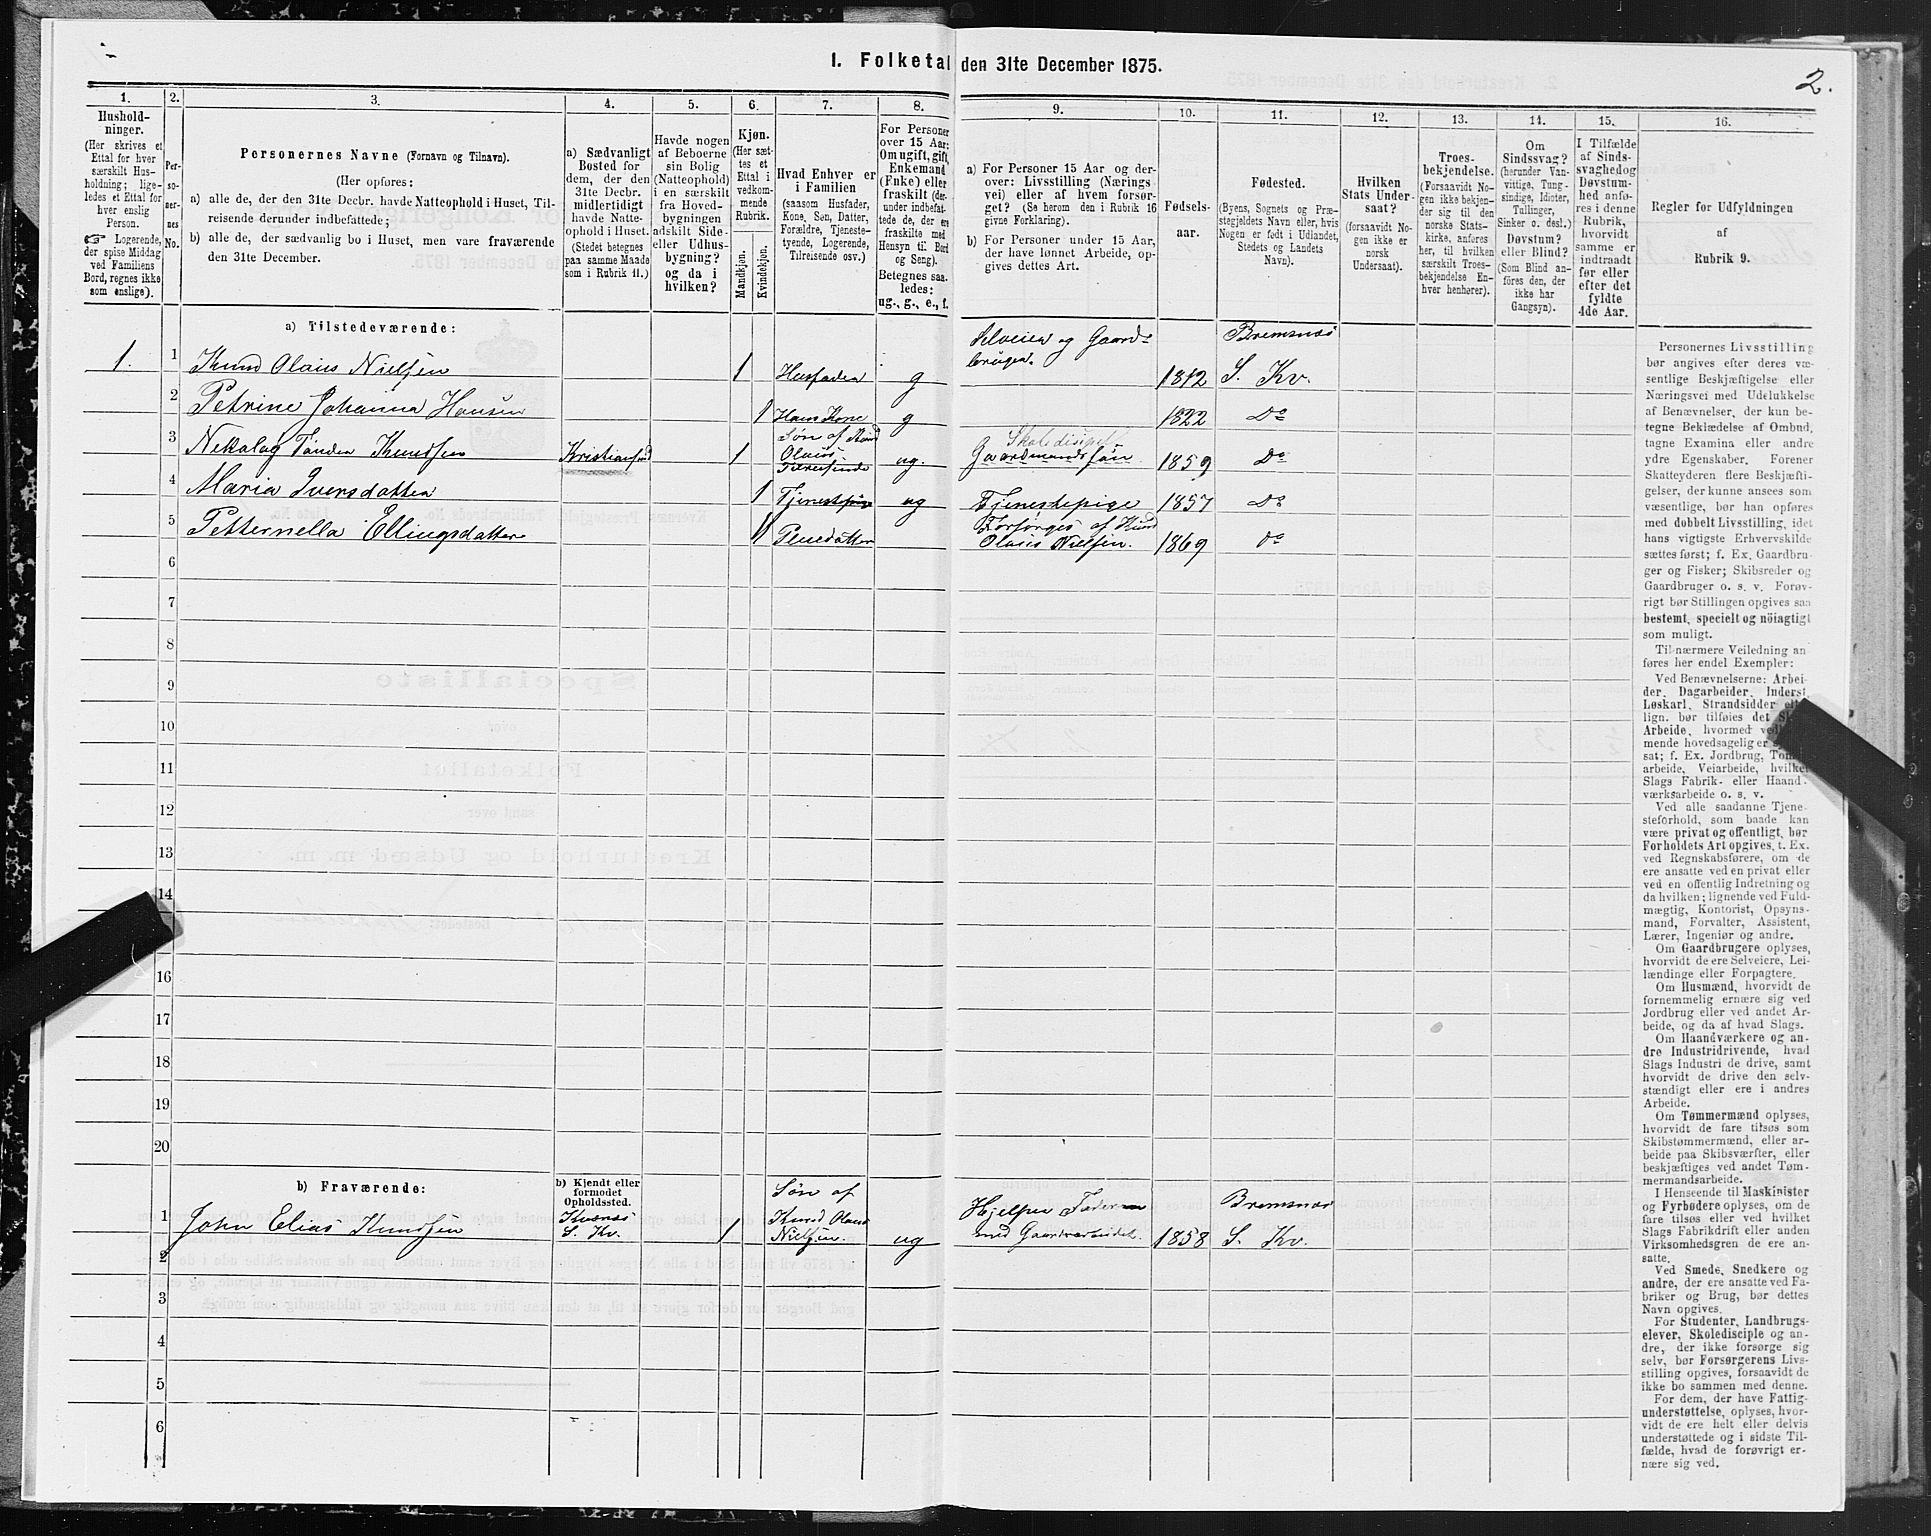 I. Folketal den 31te December 1875.
2.
1. 2. 3. 4. 5. 6. 7. 8. 9. 10. 11. 12. 13. 14. 15. 16.
Hushold-
ninger.
(Her skrives et
Ettal for hver
særskilt Hus-
holdning; lige-
ledes et Ettal for
hver enslig
Person.
☞ Logerende,
der spise Middag
ved Familiens
Bord, regnes ikke
som enslige).
Per-
so-
ner-
nes
No.
Personernes Navne (Fornavn og Tilnavn).
(Her opføres:
a) alle de, der den 31te Decbr. havde Natteophold i Huset, Til-
reisende derunder indbefattede;
b) alle de, der sædvanlig bo i Huset, men vare fraværende
den 31te December.
a) Sædvanligt
Bosted for
dem, der den
31te Decbr.
midlertidigt
havde Natte-
ophold i Huset.
(Stedet betegnes
paa samme Maade
som i Rubrik 11.)
Havde nogen
af Beboerne
sin Bolig
(Natteophold)
i en særskilt
fra Hoved-
bygningen
adskilt Side-
eller Udhus-
bygning?
og da i
hvilken?
Kjøn.
(Her sæt-
tes et
Ettal i
vedkom-
mende
Rubrik.
Mandkjøn.
Kvindekjøn.
Hvad Enhver er
i Familien
(saasom Husfader,
Kone, Søn, Datter,
Forældre, Tjeneste-
tyende, Logerende,
Tilreisende osv.)
For Personer
over 15 Aar:
Om ugift, gift,
Enkemand
(Enke) eller
fraskilt (der-
under indbefat-
tede de, der ere
fraskilte med
Hensyn til Bord
og Seng).
Betegnes saa-
ledes:
ug., g., e., f.
a) For Personer 15 Aar og der-
over: Livsstilling (Nærings-
vei) eller af hvem forsør-
get? (Se herom den i Rubrik 16
givne Forklaring).
b) For Personer under 15 Aar,
der have lønnet Arbeide, op-
gives dettes Art.
Fødsels-
aar.
Fødested.
(Byens, Sognets og Præ-
stegjeldets Navn eller, hvis
Nogen er født i Udlandet,
Stedets og Landets
Navn).
Hvilken
Stats Under-
saat?
(forsaavidt No-
gen ikke er
norsk
Undersaat).
Troes-
bekjendelse.
(Forsaavidt No-
gen ikke bekjen-
der sig til den
norske Stats-
kirke, anføres
her, til hvilken
særskilt Troes-
bekjendelse En-
hver henhører).
Om
Sindssvag?
(herunder Van-
vittige, Tung-
sindige, Idioter,
Tullinger,
Sinker o. desl.)
Døvstum?
eller Blind?
(Som Blind an-
føres den, der
ikke har
Gangsyn).
I Tilfælde
af Sinds-
svaghed og
Døvstum-
hed anfø-
res i denne
Rubrik,
hvorvidt
samme er
indtraadt
før eller
efter det
fyldte
4de Aar.
Regler for Udfyldningen
af
Rubrik 9.
a) Tilstedeværende:
1. 1 Knud Olaus Nielsen 1 Husfader g Selveier og Gaard-
bruger. 1812 Bremsnæs
S. Kv.
2 Petrine Johanna Hansen 1 Hans Kone g 1822 Do
3 Nekolay Tønder Knudsen Kristiansund 1 Søn af Knud
Olaus
Tilreisende ug. Skoledisipel
Gaardmandssøn 1859 Do
4 Maria Iversdatter 1 Tjenestepige ug Tjenestepige 1857 Do
5 Petternella Ellingsdatter 1 Pleiedatter Forsørges af Knud
Olaus Nielsen. 1869 do
6
7
8
9
10
11
12
13
14
16
17
18
19
20
b) Fraværende:
b) Kjendt eller
formodet
Opholdssted.
1 John Elias Knudsen Kvernes
S. Kv. 1 Søn af
Knud Olaus
Nielsen. ug Hjelper Faderen
med Gaardsarbeidet. 1858 Bremsnæs
S. Kv.
2
3
4
5
6
Personernes Livsstilling
bør angives efter deres væ-
sentlige Beskjæftigelse eller
Næringsvei med Udelukkelse
af Benævnelser, der kun be-
tegne Beklædelse af Ombud,
tagne Examina eller andre
ydre Egenskaber. Forener
Skatteyderen flere Beskjæfti-
gelser, der kunne ansees som
væsentlige, bør han opføres
med dobbelt Livsstilling, idet
hans vigtigste Erhvervskilde
sættes først; f. Ex. Gaardbru-
ger og Fisker; Skibsreder og
Gaardbruger o. s. v. Forøv-
rigt bør Stillingen opgives saa
bestemt, specielt og nöiagtigt
som muligt.
Til nærmere Veiledning an
føres her endel Exempler:
Ved Benævnelserne: Arbei-
der, Dagarbeider, Inderst,
Løskarl, Strandsidder
lign. bør tilføies det
Arbeide, hvormed
mende hovedsagelig er
sat; f. Ex. Jordbrug,
arbeide, Veiarbeide, hvilket
Slags Fabrik- eller Haand-
værksarbeide o. s. v.
Ved alle saadanne Tjene-
steforhold, som baade kan
være privat og offentligt, bør
Forholdets Art opgives, t. Ex.
ved Regnskabsførere, om de
ere ansatte ved en privat eller
ved en offentlig Indretning og
da hvilken; lignende ved Fuld-
mægtig, Kontorist, Opsyns-
mand, Forvalter, Assistent,
Lærer, Ingeniør og andre.
Om Gaardbrugere oplyses,
hvorvidt de ere Selveiere, Lei-
lændinge eller Forpagtere.
Om Husmænd, hvorvidt de
fornemmelig ernære sig ved
Jordbrug eller ved andet Ar-
beide, og da af hvad Slags.
Om Haandværkere og an-
dre Industridrivende, hvad
Slags Industri de drive, samt
hvorvidt de drive den selv-
stændigt eller ere i andres
Arbeide.
Om Tømmermænd oplyses,
hvorvidt de fare tilsøs som
Skibstømmermænd, eller ar-
beide paa Skibsværfter, eller
beskjæftiges ved andet Tøm-
mermandsarbeide.
I Henseende til Maskinister
og Fyrbødere oplyses, om de
fare tilsøs eller ved hvilket
Slags Fabrikdrift eller anden
Virksomhedsgren de ere an-
satte.
Ved Smede, Snedkere og
andre, der ere ansatte ved Fa-
briker og Brug, bør dettes
Navn opgives.
For Studenter, Landbrugs-
elever, Skoledisciple og an-
dre, der ikke forsørge sig
selv, bør Forsørgerens Livs-
stilling opgives, forsaavidt de
ikke bo sammen med denne.
For dem, der have Fattig-
understøttelse, oplyses, hvor-
vidt de ere helt eller delvis
understøttede og i sidste Til-
fælde, hvad de forøvrigt er-
nære sig ved.